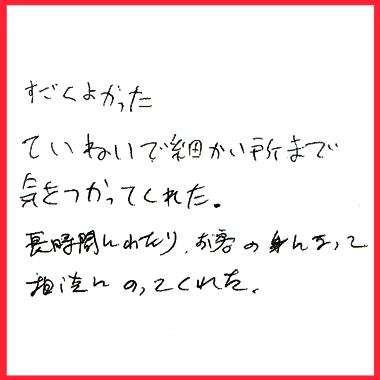 すごくよかった
ていねいで細かい所まで
気をつかってくれた。
長時間にわたり、お客の身になって
相談にのってくれた。